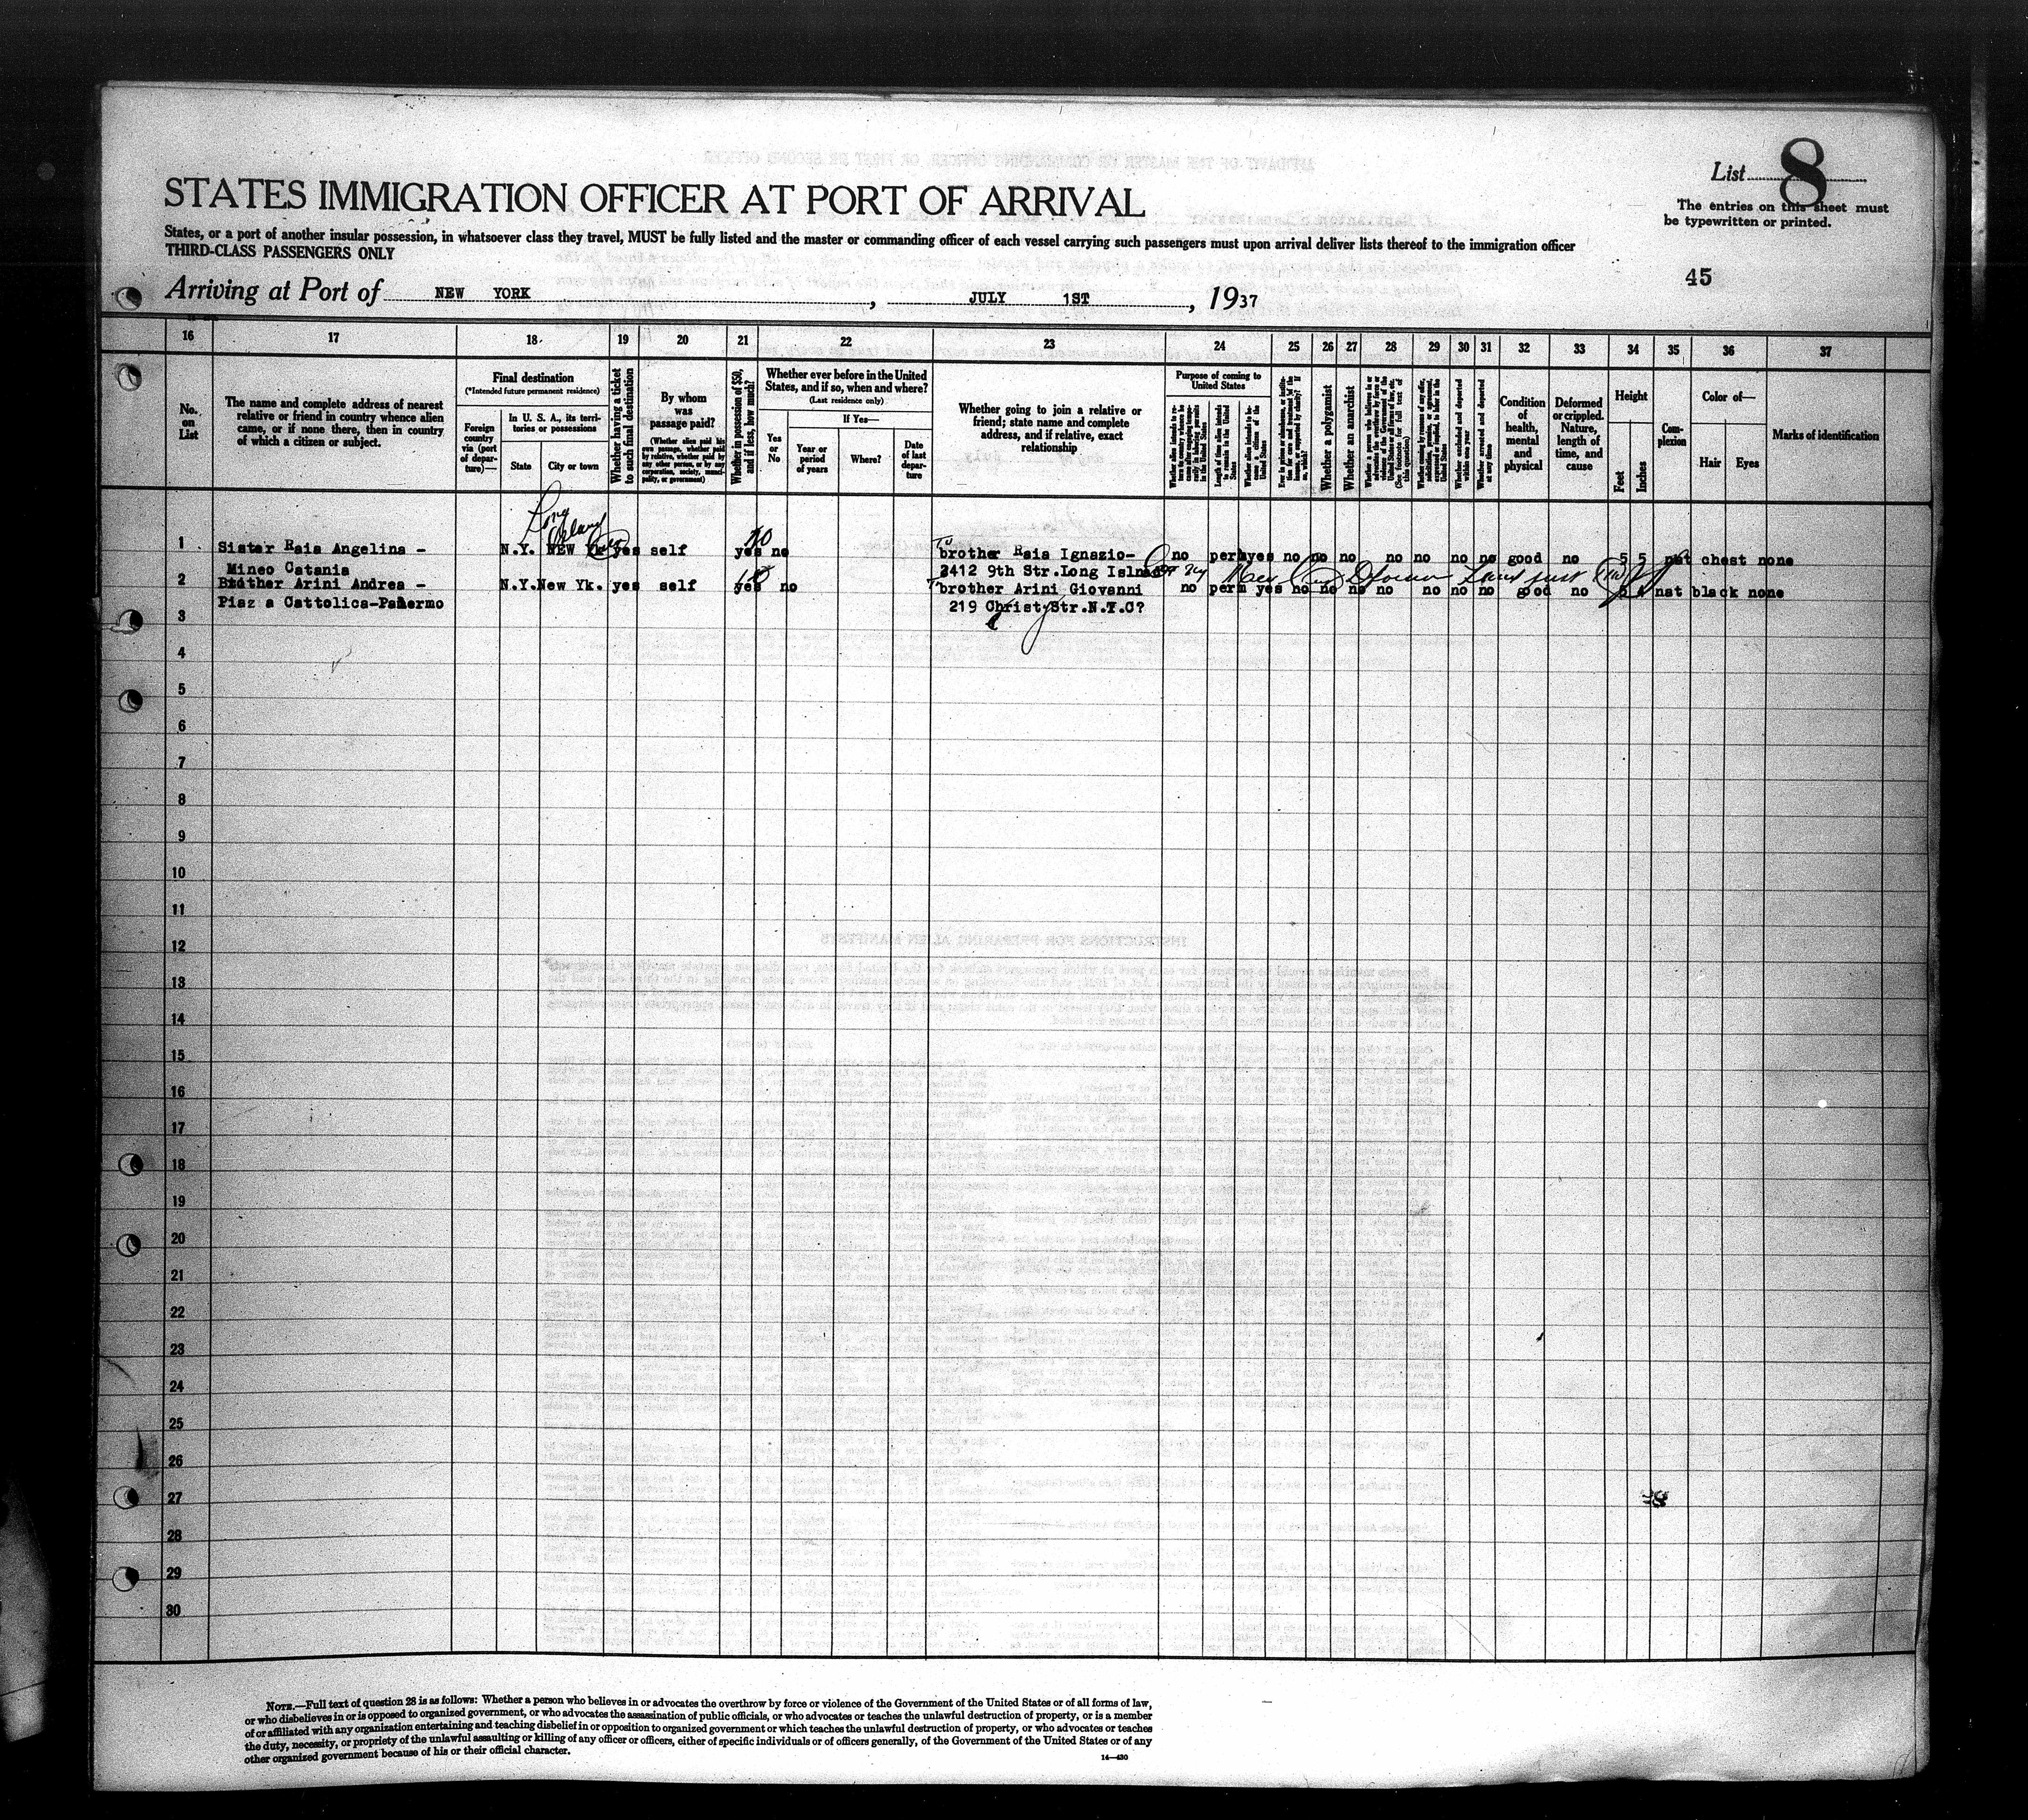 List 8
STATES IMMIGRATION OFFICER AT PORT OF ARRIVAL
The entries on this sheet must
be typewritten or printed.
States, or a port of another insular possession, in whatsoever class they travel, MUST be fully listed and the master or commanding officer of each vessel carrying such passengers must upon arrival deliver lists thereof to the immigration officer
THIRD-CLASS PASSENGERS ONLY
45
Arriving at Port of NEW YORK, JULY 1ST, 1937
16 17 18 19 20 21 22 23 24 25 26 27 28 29 30 31 32 33 34 35 36 37
No. on List
The name and complete address of nearest relative or friend in country whence alien came, or if none there, then in country of which a citizen or subject.
Final destination
(*Intended future permanent residence)
Foreign country via (port of departure)—
In U. S. A., its territories or possessions
State
City or town
Whether having a ticket to such final destination
By whom was passage paid?
(Whether alien paid his own passage, whether paid by relative, whether paid by any other person, or by any corporation, society, municipality, or government)
Whether in possession of $50, and if less, how much?
Whether ever before in the United States, and if so, when and where?
(Last residence only)
Yes or No
If Yes—
Year or period of years
Where?
Date of last departure
Whether going to join a relative or friend; state name and complete address, and if relative, exact relationship
Purpose of coming to United States
Length of time alien intends to remain in the United States
Whether alien intends to become a citizen of the United States
Whether a polygamist
Whether an anarchist
(See footnote for full text of this question)
Whether arrested and deported at any time
Condition of health, mental and physical
Deformed or crippled. Nature, length of time, and cause
Height
Feet
Inches
Complexion
Color of—
Hair
Eyes
Marks of identification
Long
Island
1 Sister Raia Angelina - N.Y. NEW Yk. yes self yes no To brother Raia Ignazio- no perm yes no no no no no no no good no 5 5 nat chest none
Mineo Catania 2412 9th Str.Long Island
2 Brother Arini Andrea - N.Y. New Yk. yes self yes no To brother Arini Giovanni no perm yes no no no no no no no good no nat black none
Piaz a Cattolica-Palermo 219 Christy Str.N.Y.C?
3
4
5
6
7
8
9
10
11
12
13
14
15
16
17
18
19
20
21
22
23
24
25
26
27
28
29
30
NOTE.—Full text of question 28 is as follows: Whether a person who believes in or advocates the overthrow by force or violence of the Government of the United States or of all forms of law,
or who disbelieves in or is opposed to organized government, or who advocates the assassination of public officials, or who advocates or teaches the unlawful destruction of property, or is a member
of or affiliated with any organization entertaining and teaching disbelief in or opposition to organized government or which teaches the unlawful destruction of property, or who advocates or teaches
the duty, necessity, or propriety of the unlawful assaulting or killing of any officer or officers, either of specific individuals or of officers generally, of the Government of the United States or of any
other organized government because of his or their official character.
14—430